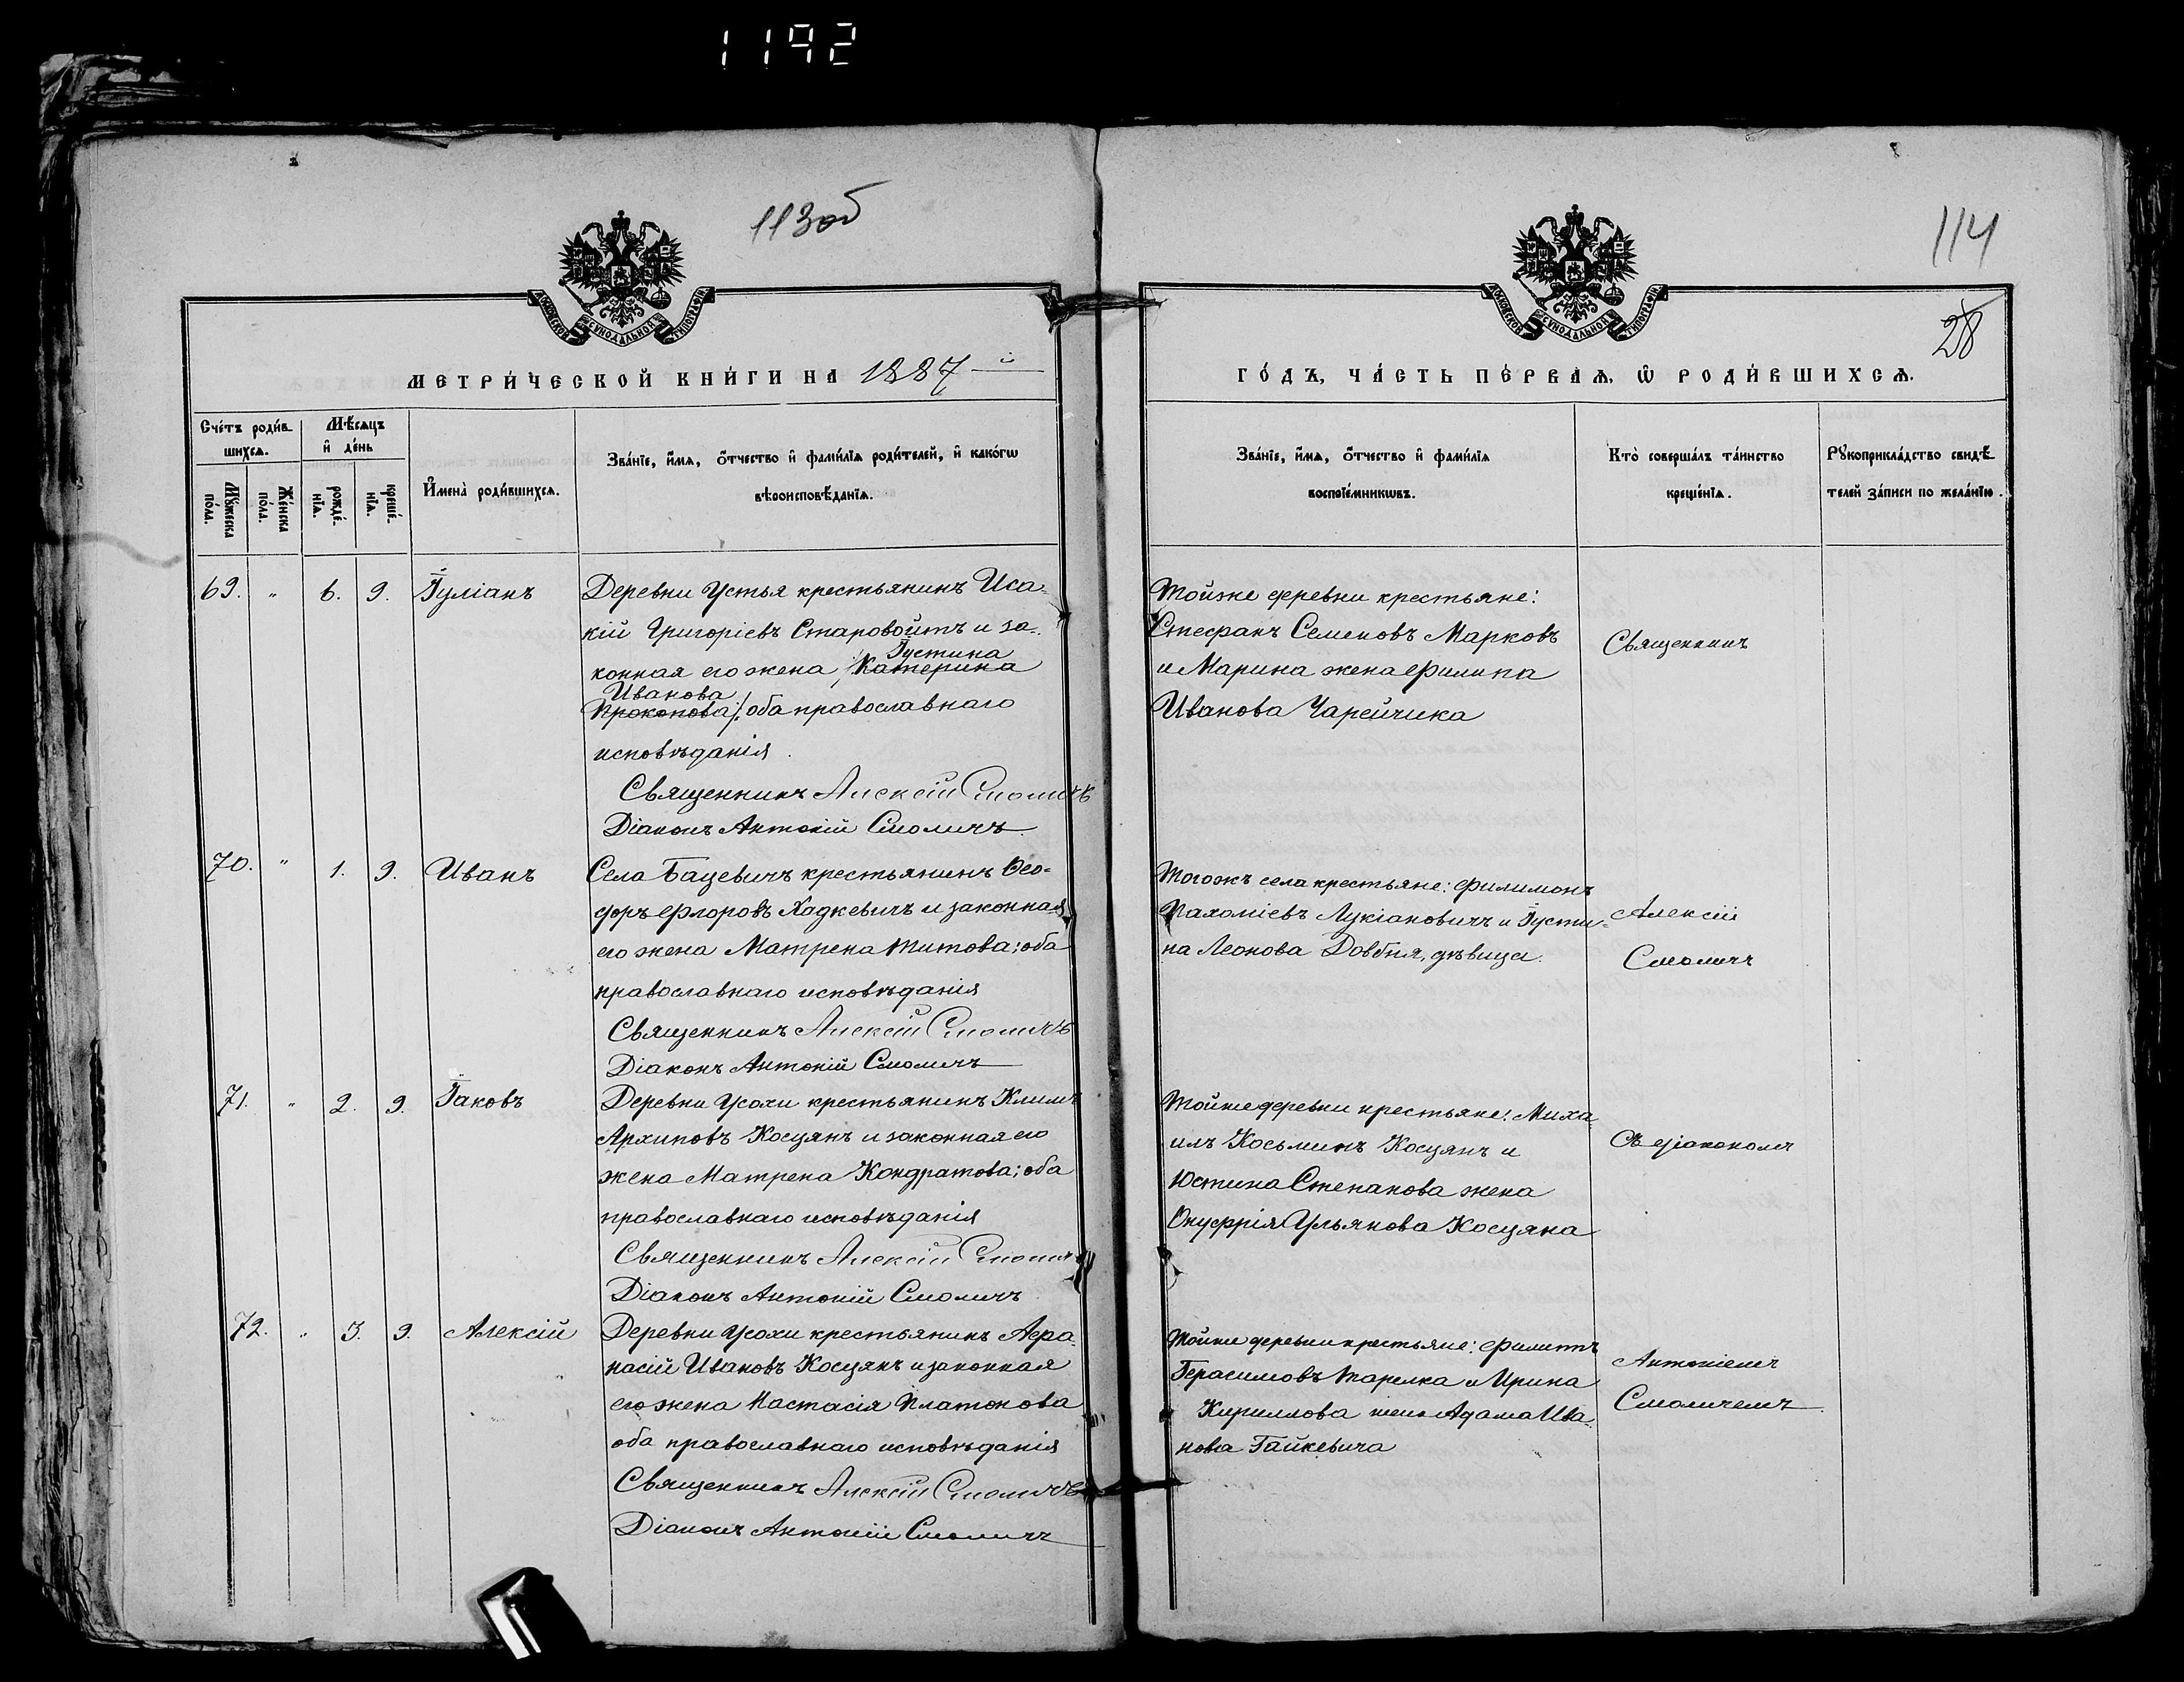 1192
113об
114
28
МЕТРИ́ЧЕСКОЙ КНИ́ГИ НА 1887-й
ГО́ДЪ, ЧА́СТЬ ПЕ́РВАѦ, Ѽ РОДИ́ВШИХСѦ.
Сче́тъ роди́вшихсѧ.
Мѣ́сѧцъ и҆ де́нь
Мꙋ́жеска по́ла.
Же́нска по́ла.
рожде́нїѧ.
креще́нїѧ.
И҆мена̀ роди́вшихсѧ.
Зва́нїе, и҆́мѧ, ѻ҆́тчество и҆ фами́лїѧ роди́телей, и҆ како́гѡ
вѣроисповѣ́данїѧ.
Зва́нїе, и҆́мѧ, ѻ҆́тчество и҆ фами́лїѧ
воспрїе́мникѡвъ.
Кто̀ соверша́лъ та́инство
креще́нїѧ.
Рꙋкоприкла́дство свидѣ́телей за́писи по жела́нїю.
69. " 6. 9. Іуліанъ
Деревни Устья крестьянинъ Иса-
кій Григоріевъ Старовойтъ и за-
Іустина
конная его жена /Катерина
Иванова
Прокопова/; оба православнаго
исповѣданія.
Священникъ Алексій Смоличъ
Діаконъ Антоній Смоличъ
Тойже деревни крестьяне:
Стефанъ Семеновъ Марковъ
и Марина жена Филипа
Иванова Чарейчика
Священникъ
70. " 1. 9. Иванъ
Села Бацевичъ крестьянинъ Ѳео-
доръ Флоровъ Хадкевичъ и законная
его жена Матрена Титова; оба
православнаго исповѣданія
Священникъ Алексій Смоличъ
Діаконъ Антоній Смоличъ
Тогожъ села крестьяне: Филимонъ
Пахоміевъ Лукіановичъ и Іусти-
на Леонова Довбня, дѣвица.
Алексій
Смоличъ
71. " 2. 9. Іаковъ
Деревни Усохи крестьянинъ Климъ
Архиповъ Косцянъ и законная его
жена Матрена Кондратова; оба
православнаго исповѣданія
Священникъ Алексій Смолич
Діаконъ Антоній Смоличъ
Тойже деревни крестьяне: Миха
илъ Косьминъ Косцянъ и
Юстина Степанова жена
Онуфрія Ульянова Косцяна
Съ діакономъ
72. " 3. 9. Алексій
Деревни Усохи крестьянинъ Афа-
насій Ивановъ Косцянъ и законная
его жена Настасія Платонова
оба православнаго исповѣданія
Священникъ Алексій Смоличъ
Діаконъ Антоній Смоличъ
Тойже деревни крестьяне: Филиппъ
Герасимовъ Тарелка и Ирина
Кириллова жена Адама Ива-
нова Гайкевича
Антоніемъ
Смоличемъ